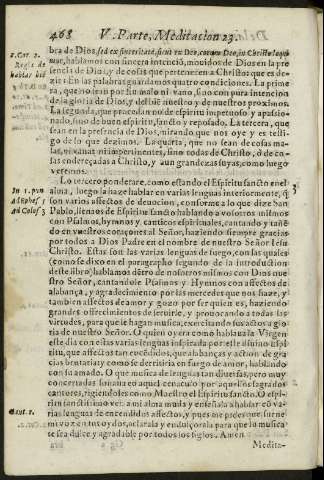 468 V. Parte, Meditacion 23.
bra de Dios, sed ex sinceritate, sicut ex Deo, coram Deo, in Christo loqui-
mur, hablamos con sincera intenciō, movidos de Dios en la pre
sencia de Dios, y de cosas que pertenecen a Christo: que es de-
zir: En las palabras guardamos quatro condiciones. La prime
ra, que no sean por fin malo ni vano, sino con pura intencion
de la gloria de Dios, y del biē nuestro y de nuestros proximos.
La segunda, que procedan no de espiritu impetuoso y apasio-
nado, sino de buen espiritu, sancto y reposado. La tercera, que
sean en la presencia de Dios, mirando que nos oye y es testi-
go de lo que dezimos. La quarta, que no sean de cosas ma-
las, ni vanas ni impertinentes, sino todas de Christo, ò de co-
sas endereçadas a Christo, y a sus grandezas suyas, como luego
veremos.
Lo tercero ponderare, como estando el Espiritu sancto en el
alma, luego la haze hablar en varias lenguas interiormente, q̄
son varios affectos de devocion, conforme a lo que dize San
Pablo, llenaos de Espiritu sancto hablando a vosotros mismos
con Psalmos, hymnos, y canticos espirituales, cantando y tañē
do en vuestros coraçones al Señor, haziendo siempre gracias
por todos a Dios Padre en el nombre de nuestro Señor Iesu
Christo. Estas son las varias lenguas de fuego, con las quales
(como se dixo en el paragrapho segundo de la introduction
deste libro) hablamos dētro de nosotros mismos con Dios nue
stro Señor, cantandole Psalmos y Hymnos con affectos de
alabança, y agradecimiento por las mercedes que nos haze, y
tambien affectos de amor y gozo por ser quien es, haziendo
grandes offrecimientos de servirle, y provocando a todas las
virtudes, para que le hagan musica, exercitando sus actos a glo
ria de nuestro Señor. O quien oyera como hablava la Virgen
este dia con estas varias lenguas inspirada por este divino espi-
ritu, que affectos tan encēdidos, que alabanças y action de gra
cias brotaria: y como se derretiria en fuego de amor, hablando
con su amado. O que musica de lenguas tan diversas, pero muy
concertadas sonaria en aquel cenaculo por aquellos sagrados
cantores, rigiendoles como Maestro el Espiritu sancto. O espi-
ritu sanctissimo ven a mi alma muda y enseñala a hablar cō va-
rias lenguas de encendidos affectos, y pues me pides que suene
mi voz en tus oydos, aclarala y endulçorala para que su musica
te sea dulce y agradable por todos los siglos. Amen.
Medita-
2. Cor. 2.
Regla de
hablar biē
In 1. pun
ad Ephes. 5
ad Colos. 3
Cant. 2.